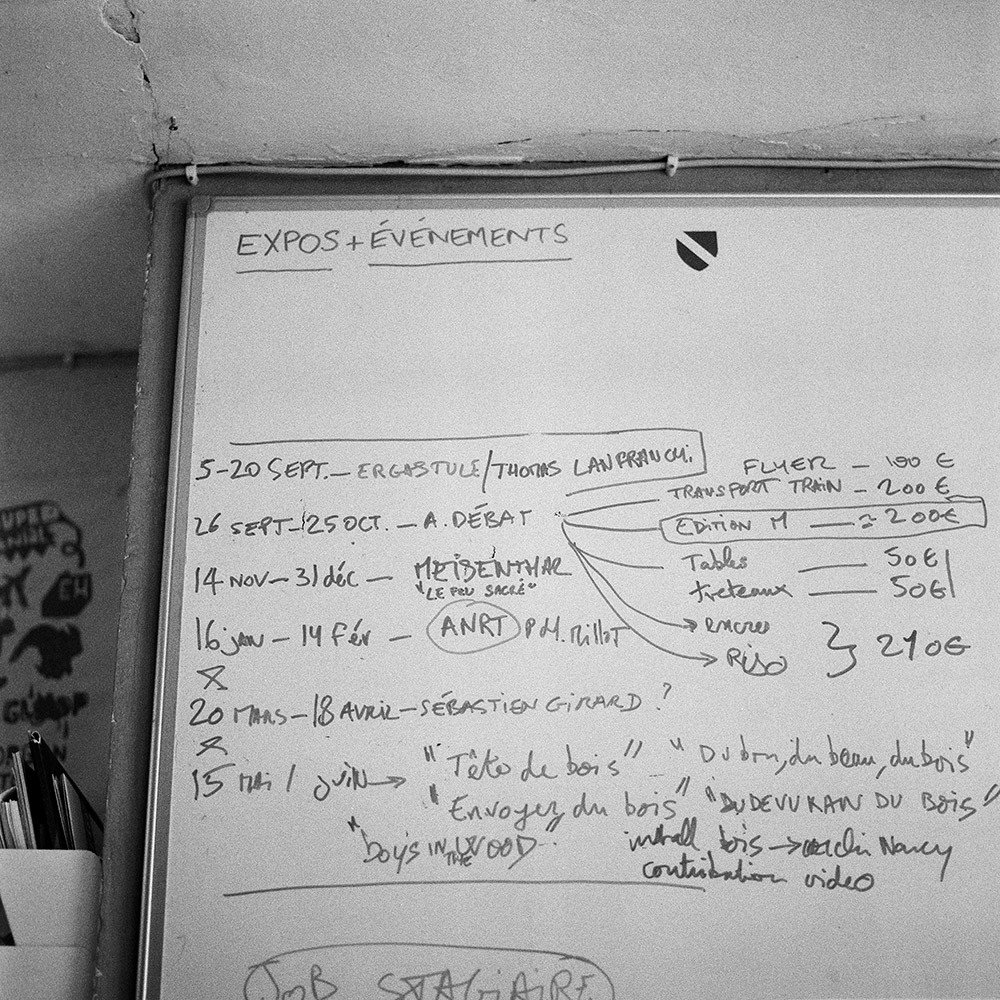 EXPOS + ÉVÉNEMENTS
5-20 SEPT. — ERGASTULE/THOMAS LANFRANCHI.
FLYER — 100 €
TRANSPORT TRAIN — 200 €
26 SEPT - 25 OCT. — A. DÉBAT
EDITION M — ≈ 200€
14 NOV — 31 déc — MEISENTHAL
"LE FEU SACRÉ"
Tables — 50€
tréteaux — 50€
16 jan — 14 Fév — ANRT P.M. Millot
encres
Riso } 210€
20 MARS — 18 AVRIL — SÉBASTIEN GIRARD ?
15 MAI / JUIN → "Tête de bois" — "Du bon, du beau, du bois"
"Envoyez du bois" "DUDEVUKAN DU BOIS"
"boy's IN THE WOOD"
install bois → Nancy
contribution video
JOB STAGIAIRE